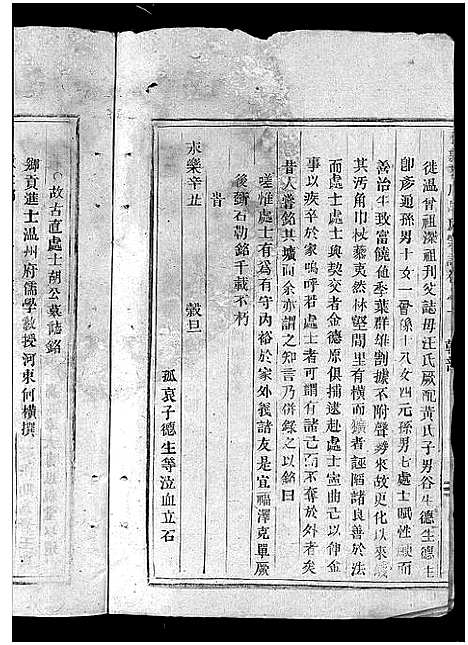 徙温曾祖深祖判父誌母汪氏厥配黃氏子男谷生德生德生
即彥通孫男十女一晉孫十八女四元孫男七處士賦性駿而
善治生致富饒色季葉群雄割據不附聲勢來故更化以來
其污角巾杖藜夷然林壑間里有橫而獷者誣陷諸良善於法
而處士處士與契交者金德原俱捕逮赴處士寧曲己以伸金
事以疾卒於家嗚呼若處士者可謂有諸己而不奪於外者矣
昔人嘗銘其壙而余亦謂之知言乃併錄之以銘曰
嗟維處士有為有守內裕於家外義諸友是宜福澤克單厥
後鑱石勒銘千載不朽
旹
永樂辛丑 穀旦
孤哀子德生等泣血立石
故古直處士胡公墓誌銘
鄉貢進士温州府儒學教授河東何橫撰